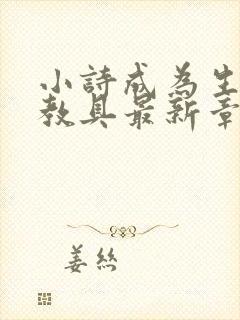 小詩成為生
教具最新章
姜絲